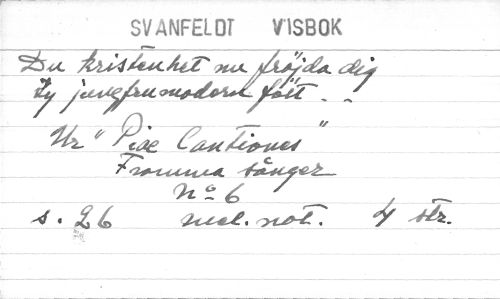 SVANFELDT VISBOK
Du kristenhet nu fröjda dig
Ty jungfrumodern fött . . 
Ur "Piae Cantiones"
Fromma sånger
No 6
s. 26 mel. not. 4 str.